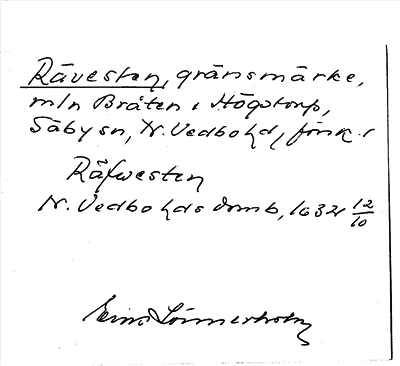 Rävesten, gränsmärke,
mln Bråten i Högstorp,
Säby sn, N. Vedbo hd, Jönk. l
Räfwesten
N. Vedbo hds domb, 1632 12/10